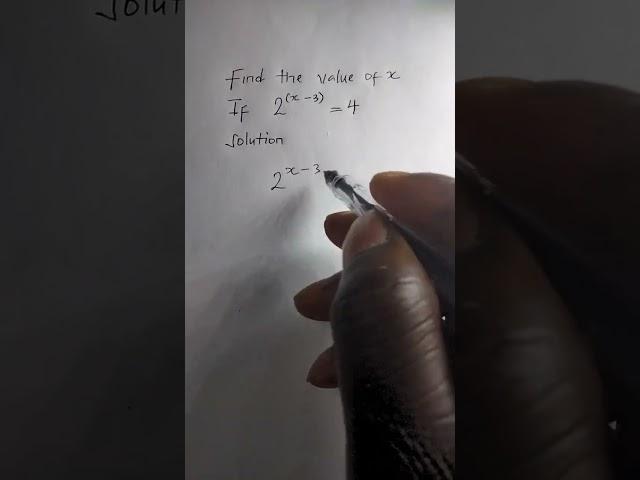 Solut
Find the value of x
If 2^(x-3) = 4
Solution
2^x-3